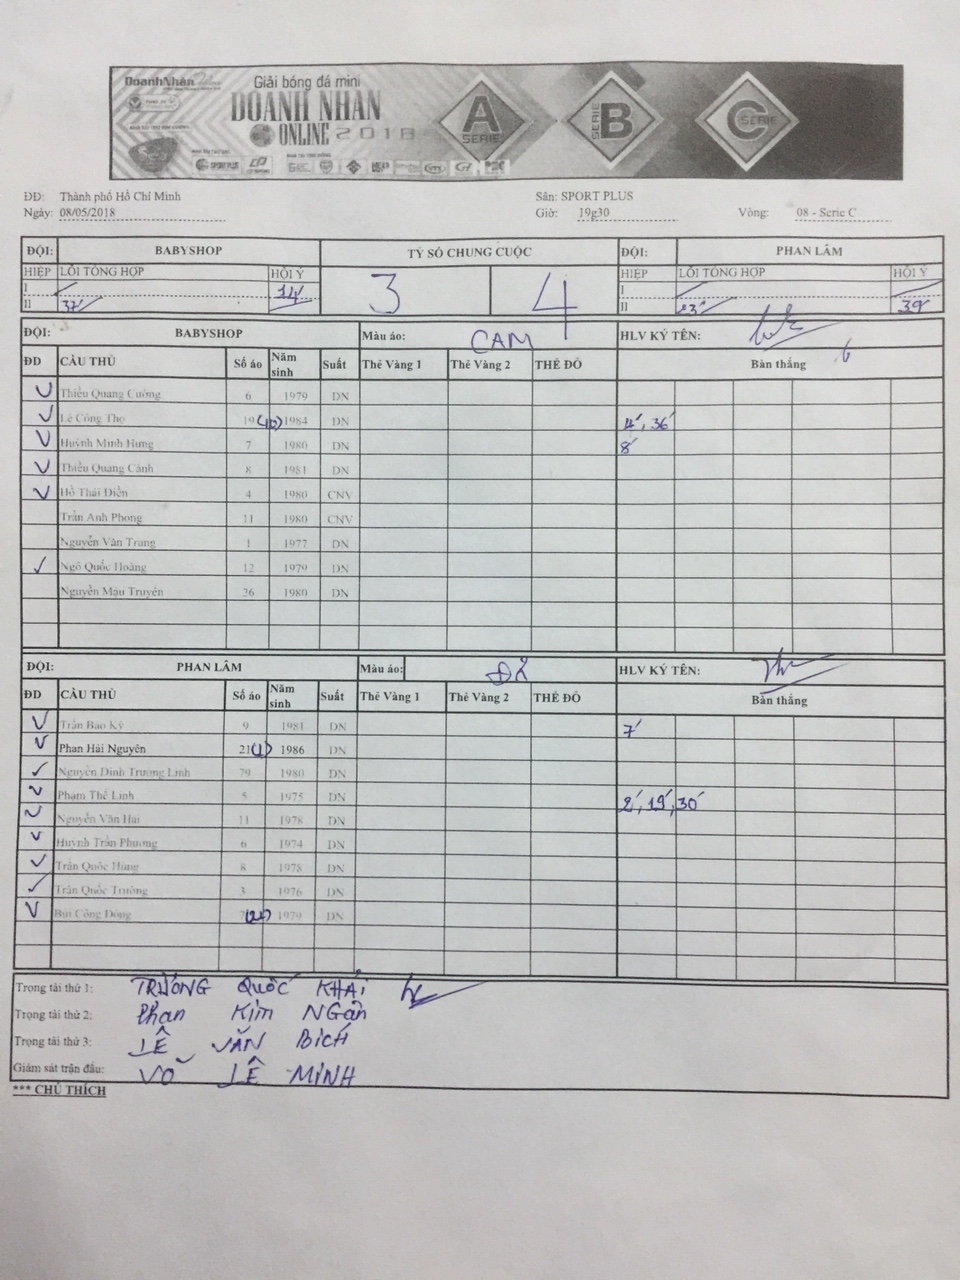 DoanhNhân Online
Giải bóng đá mini
DOANH NHÂN
ONLINE 2018
A SERIE
SERIE B
C SERIE
SPORT PLUS
ĐĐ: Thành phố Hồ Chí Minh Sân: SPORT PLUS
Ngày: 08/05/2018 Giờ: 19g30 Vòng: 08 - Serie C
ĐỘI: BABYSHOP TỶ SỐ CHUNG CUỘC ĐỘI: PHAN LÂM
HIỆP LỖI TỔNG HỢP HỘI Ý 3 4 HIỆP LỖI TỔNG HỢP HỘI Ý
I 14' I
II 37' II 23' 39'
ĐỘI: BABYSHOP Màu áo: CAM HLV KÝ TÊN:
ĐD CẦU THỦ Số áo Năm sinh Suất Thẻ Vàng 1 Thẻ Vàng 2 THẺ ĐỎ Bàn thắng
Thiều Quang Cường 6 1979 DN
Lê Công Thọ 19 (10) 1984 DN 4', 36'
Huỳnh Minh Hưng 7 1980 DN 8'
Thiều Quang Cảnh 8 1981 DN
Hồ Thái Điền 4 1980 CNV
Trần Anh Phong 11 1980 CNV
Nguyễn Văn Trung 1 1977 DN
Ngô Quốc Hoàng 12 1979 DN
Nguyễn Mậu Truyên 26 1980 DN
ĐỘI: PHAN LÂM Màu áo: ĐỎ HLV KÝ TÊN:
ĐD CẦU THỦ Số áo Năm sinh Suất Thẻ Vàng 1 Thẻ Vàng 2 THẺ ĐỎ Bàn thắng
Trần Bảo Kỳ 9 1981 DN 7'
Phan Hải Nguyên 21 (1) 1986 DN
Nguyễn Đình Trường Linh 79 1980 DN
Phạm Thế Linh 5 1975 DN 2', 19', 30'
Nguyễn Văn Hai 11 1978 DN
Huỳnh Trần Phương 6 1974 DN
Trần Quốc Hùng 8 1978 DN
Trần Quốc Trường 3 1976 DN
Bùi Công Dong (21) 1979 DN
Trọng tài thứ 1: TRƯƠNG QUỐC KHẢI
Trọng tài thứ 2: Phan Kim Ngân
Trọng tài thứ 3: LÊ VĂN BÍCH
Giám sát trận đấu: VÕ LÊ MINH
*** CHÚ THÍCH